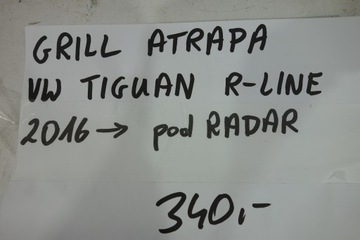 GRILL ATRAPA
VW TIGUAN R-LINE
2016→ pod RADAR
340,-